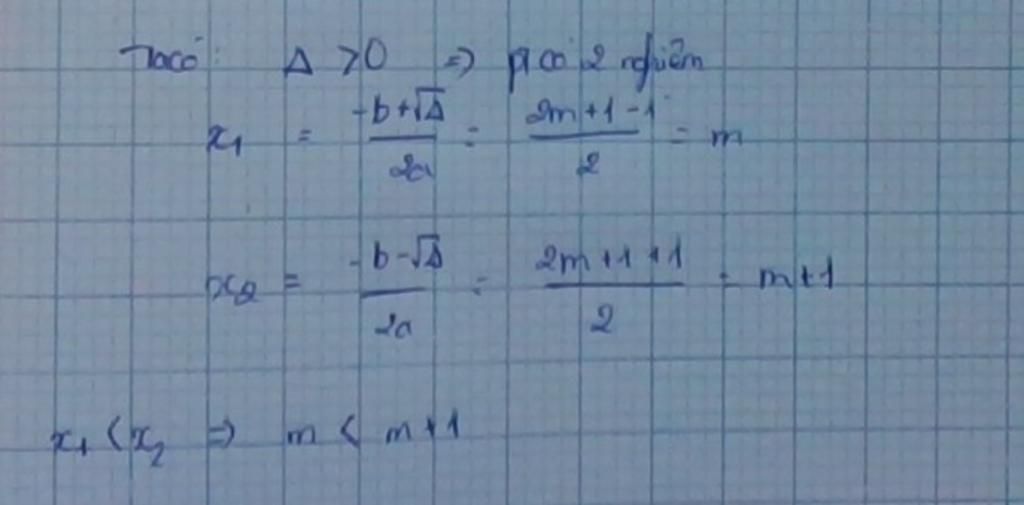 Ta có: Δ > 0 => pt có 2 nghiệm
x₁ = (-b+√Δ)/2a = (2m+1-1)/2 = m
x₂ = (-b-√Δ)/2a = (2m+1+1)/2 = m+1
x₁ < x₂ => m < m+1